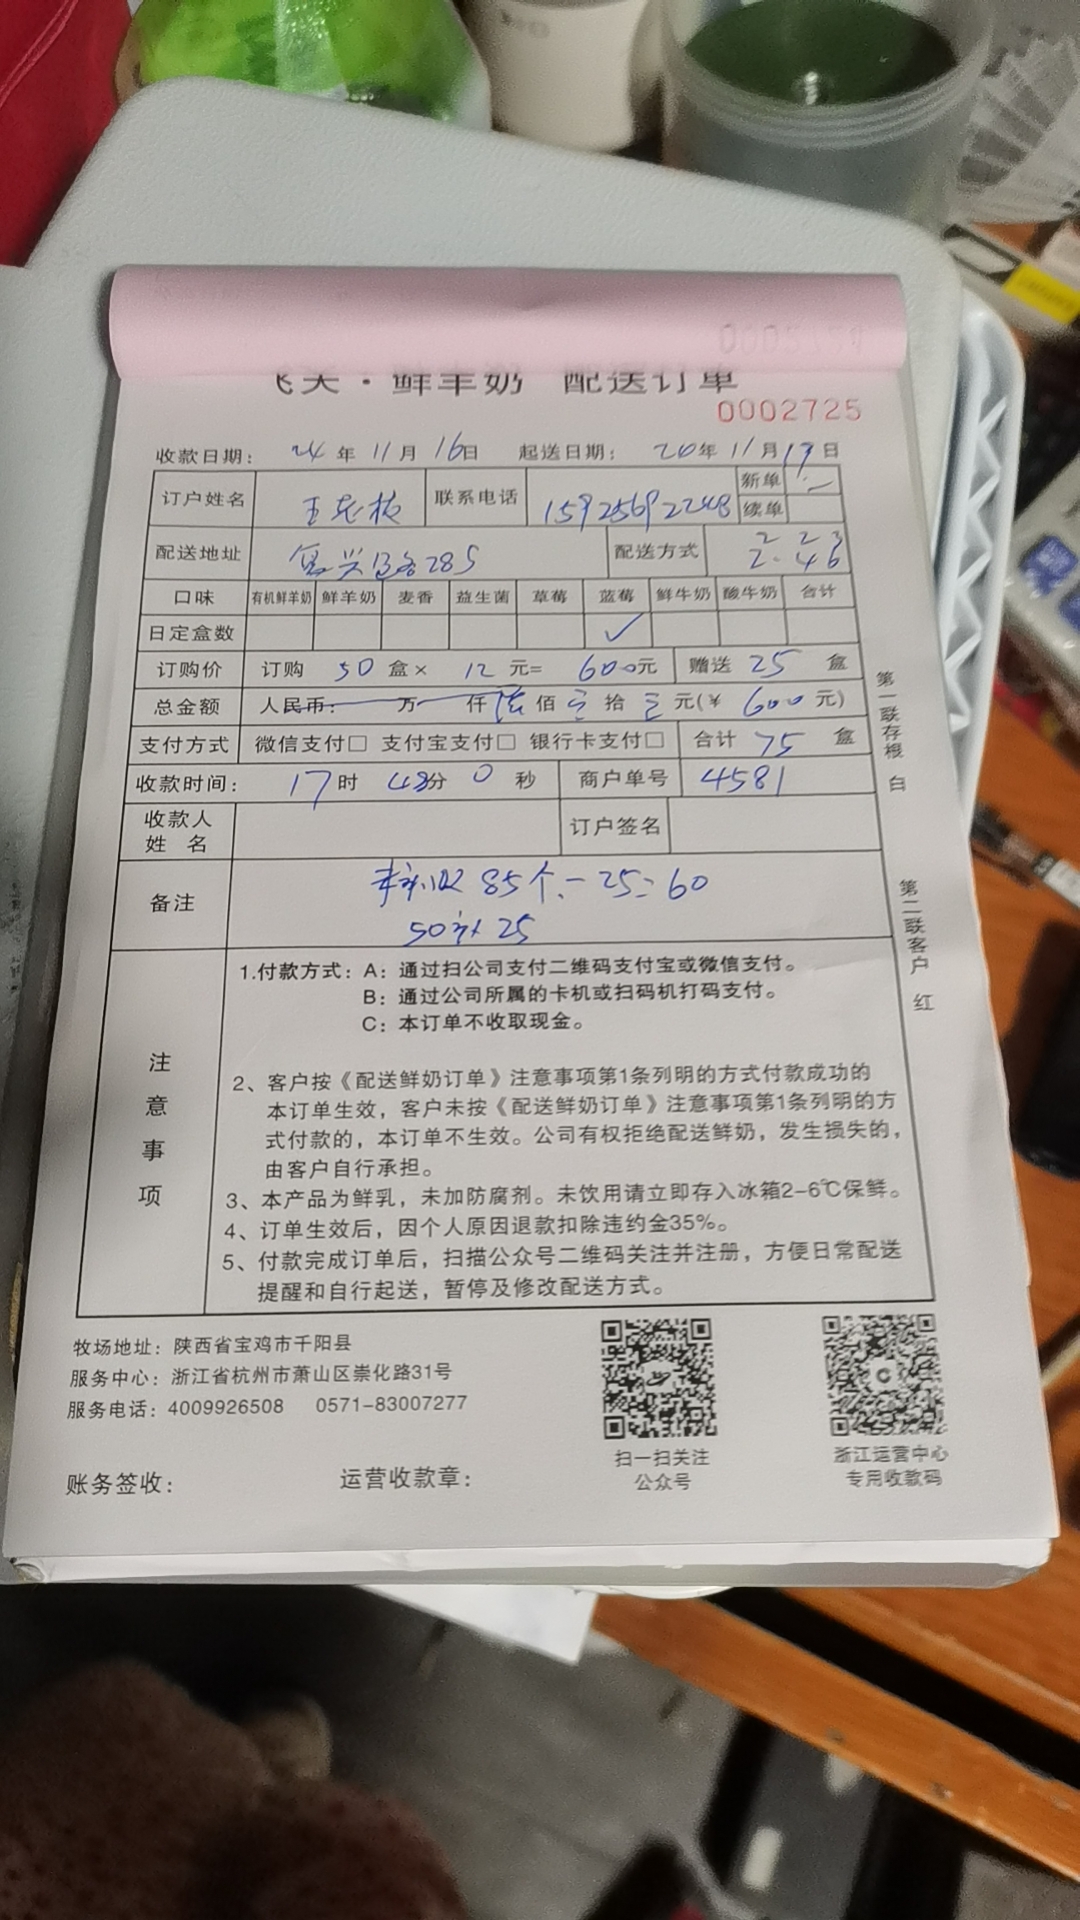 ·鲜羊奶 配送订单
0002725
收款日期： 24 年 11 月 16 日 起送日期： 年 11 月 19 日
订户姓名 王老板 联系电话 15925692248 新单
续单
配送地址 复兴路285 配送方式 2 2 3
2. 4 6
口味 有机鲜羊奶 鲜羊奶 麦香 益生菌 草莓 蓝莓 鲜牛奶 酸牛奶 合计
日定盒数 ✓
订购价 订购 50 盒× 12 元= 600元 赠送 25 盒
总金额 人民币： 万 仟 陆 佰 拾 元(¥ 600 元)
支付方式 微信支付□ 支付宝支付□ 银行卡支付□ 合计 75 盒
收款时间： 17 时 48分 0 秒 商户单号 4581
收款人
姓 名 订户签名
备注 85个.-25=60
50 25
注意事项
1.付款方式：A：通过扫公司支付二维码支付宝或微信支付。
B：通过公司所属的卡机或扫码机打码支付。
C：本订单不收取现金。
2、客户按《配送鲜奶订单》注意事项第1条列明的方式付款成功的
本订单生效，客户未按《配送鲜奶订单》注意事项第1条列明的方
式付款的，本订单不生效。公司有权拒绝配送鲜奶，发生损失的，
由客户自行承担。
3、本产品为鲜乳，未加防腐剂。未饮用请立即存入冰箱2-6℃保鲜。
4、订单生效后，因个人原因退款扣除违约金35%。
5、付款完成订单后，扫描公众号二维码关注并注册，方便日常配送
提醒和自行起送，暂停及修改配送方式。
第一联存根 白
第二联客户 红
牧场地址：陕西省宝鸡市千阳县
服务中心：浙江省杭州市萧山区崇化路31号
服务电话：4009926508 0571-83007277
扫一扫关注
公众号
浙江运营中心
专用收款码
账务签收： 运营收款章：